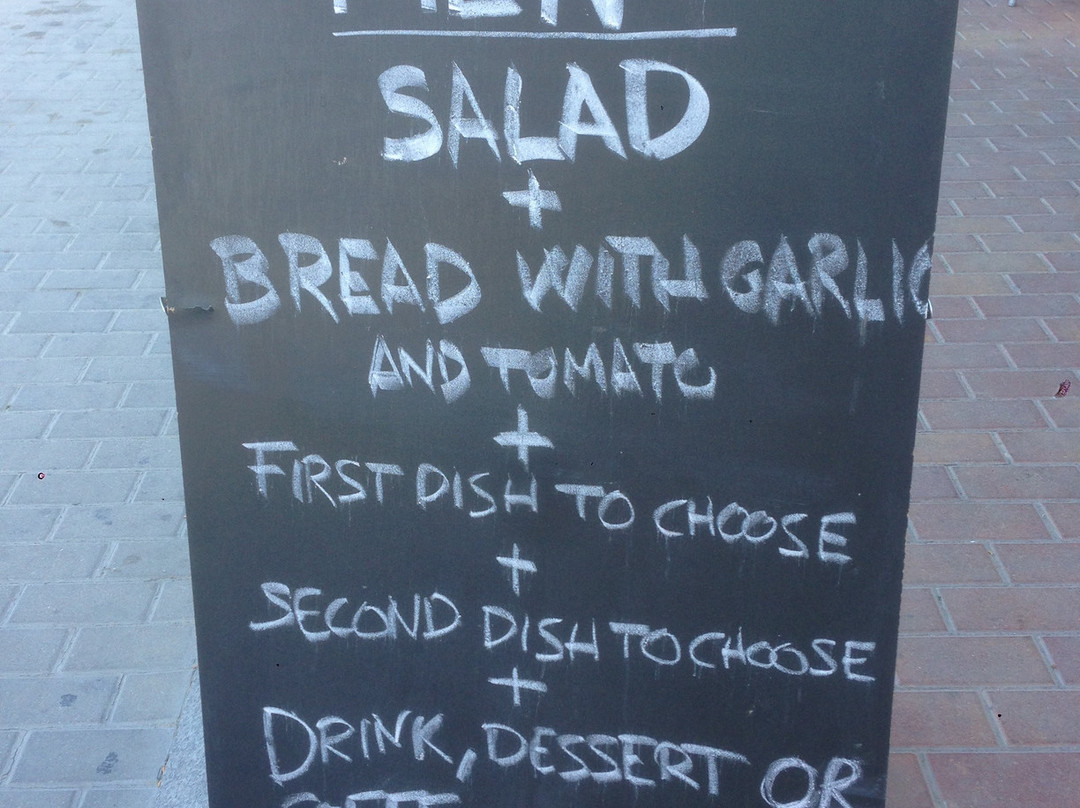 SALAD
+
BREAD WITH GARLIC
AND TOMATO
+
FIRST DISH TO CHOOSE
+
SECOND DISH TO CHOOSE
+
DRINK, DESSERT OR